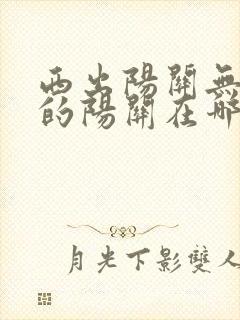 西出陽關無
的陽關在哪
月光下影雙人